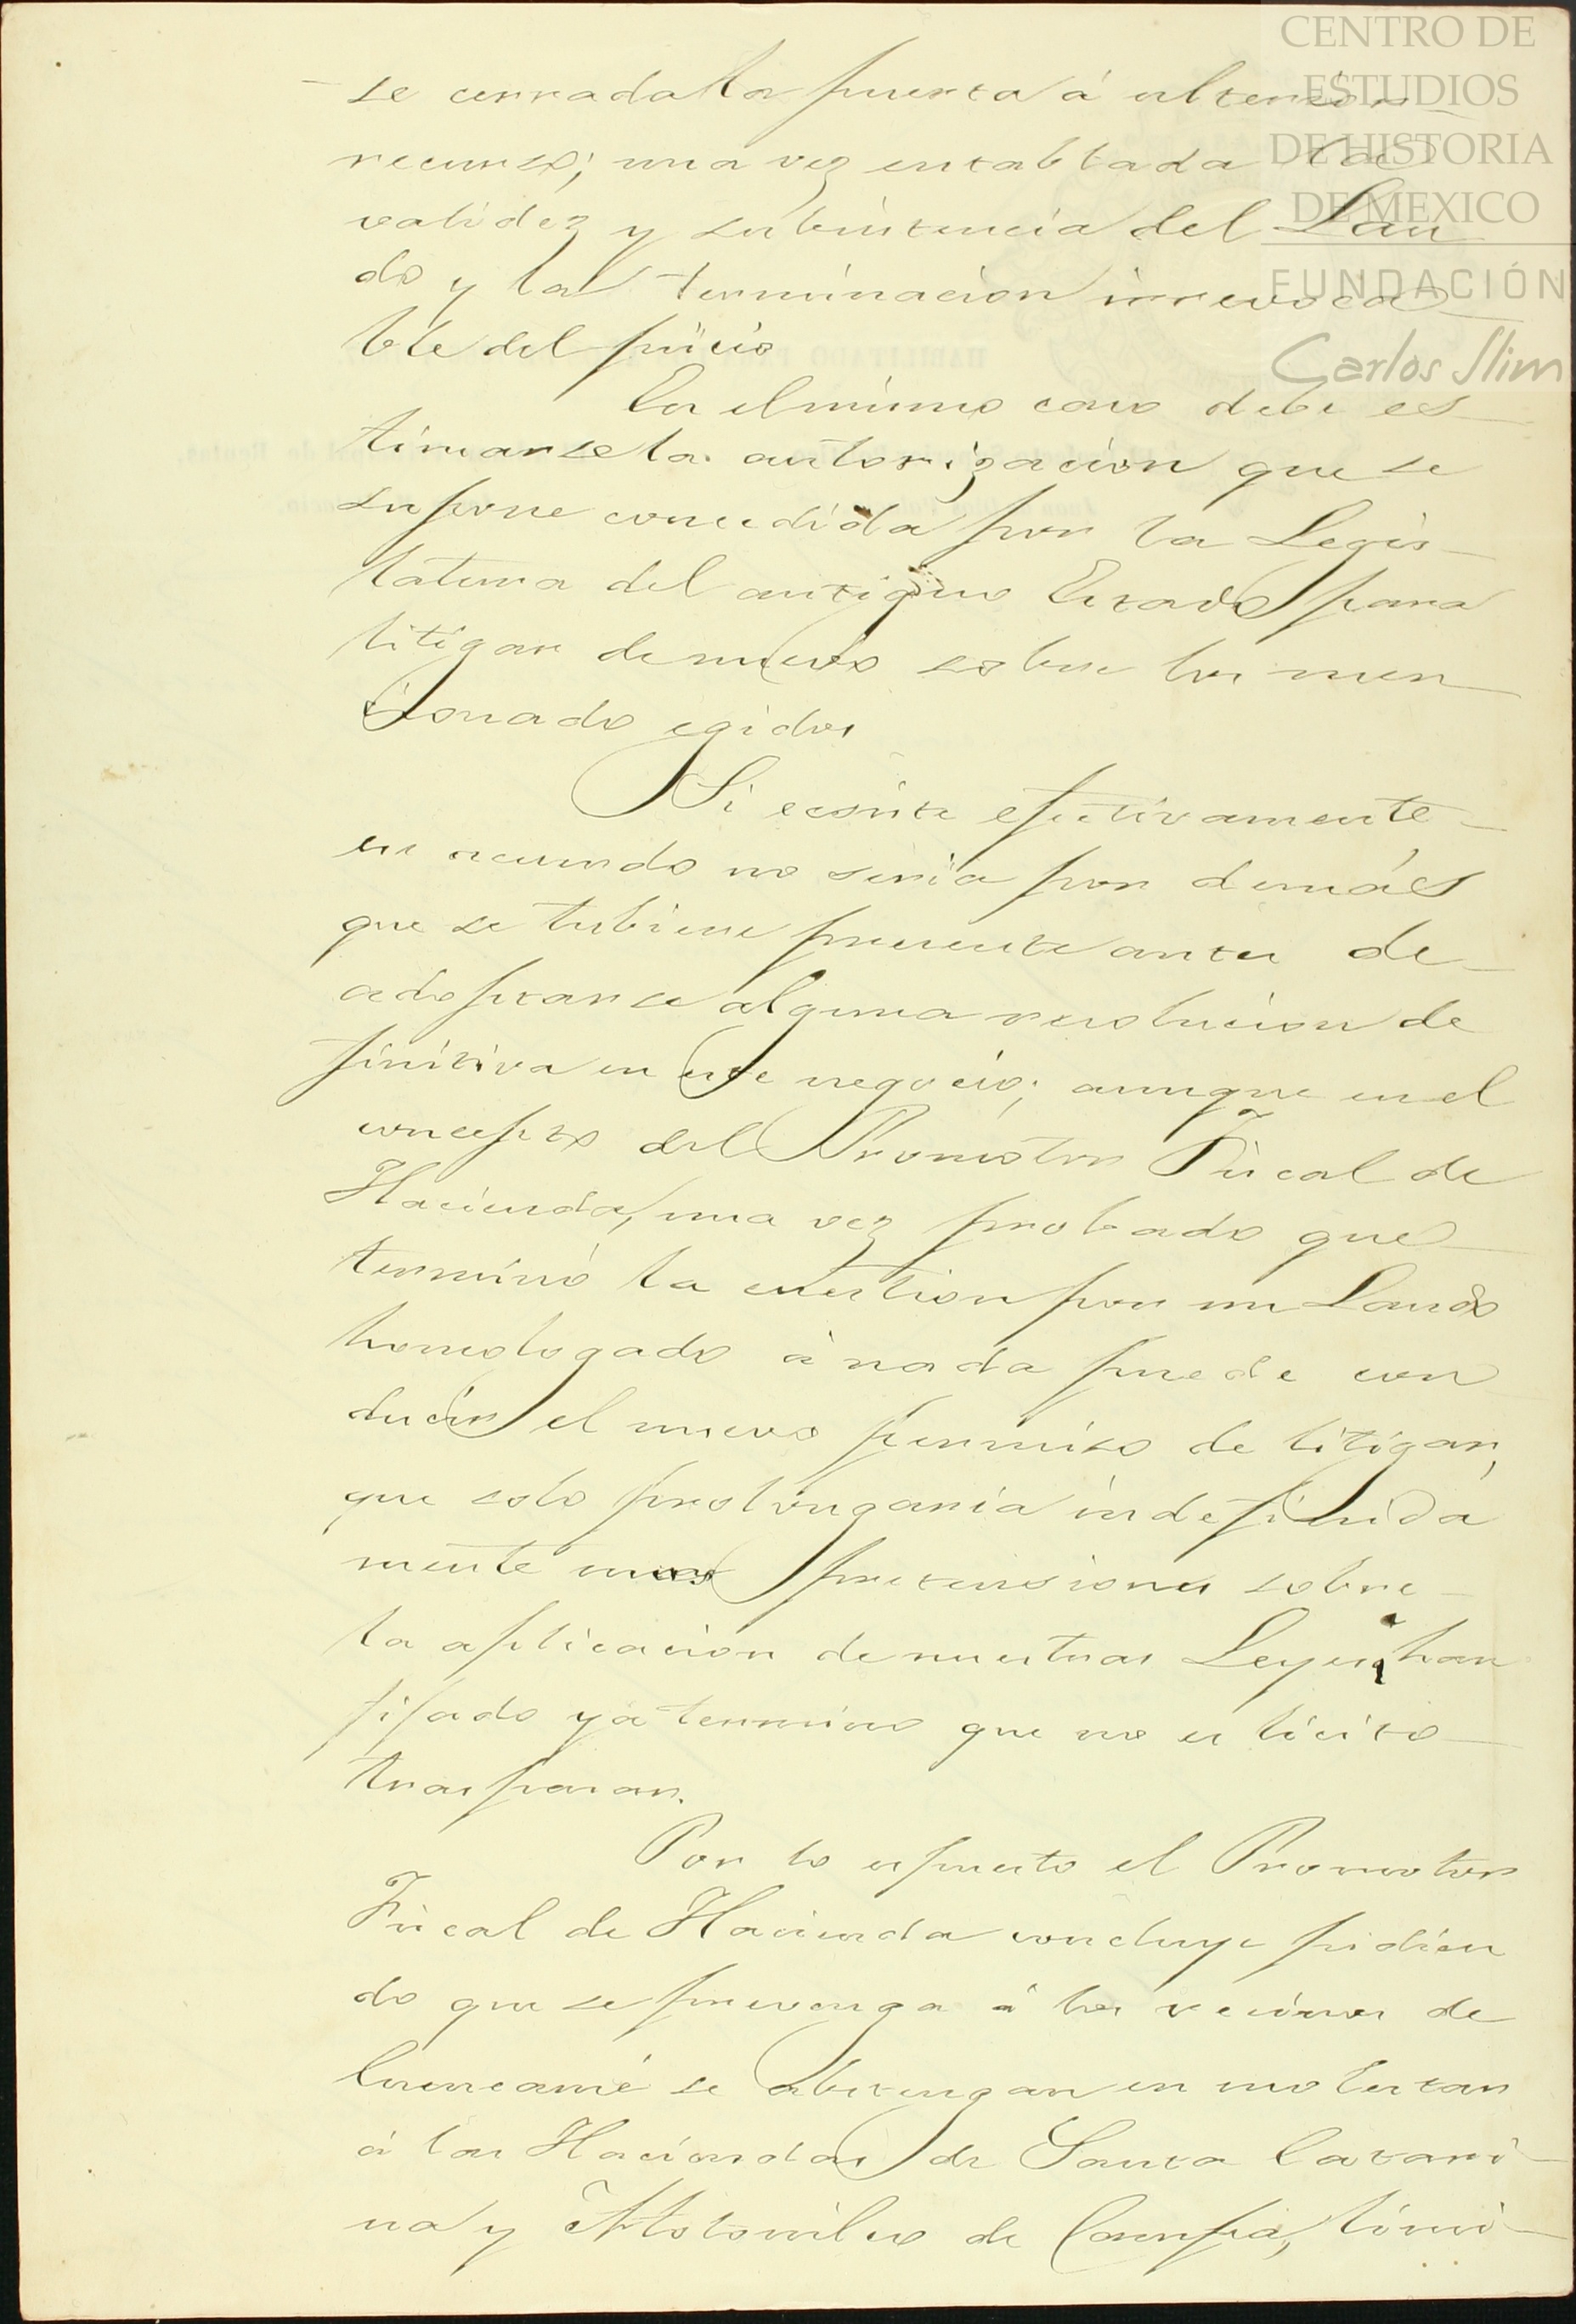 CENTRO DE
ESTUDIOS
DE HISTORIA
DE MEXICO
FUNDACIÓN
Carlos Slim
se cerrada la puerta á ulterior
recurso; una vez entablada la
validez y subsistencia del Lau
do y la terminacion irrevoca
ble del juicio
En el mismo caso debe es
timarse la autorizacion que se
supone concedida por la Legis
latura del antiguo Estado para
litigar de nuevo sobre los men
cionado egidos
Si ecsiste efectivamente
ese acuerdo no seria por demás
que se tubiese presente antes de
adoptarse alguna resolucion de
finitiva en este negocio; aunque en el
concepto del Promotor Fiscal de
Hacienda, una vez probado que
terminó la cuestion por un Laudo
homologado á nada puede con
ducir el nuevo permiso de litigar,
que solo prolongaria indefinida
mente unas pretensiones sobre
la aplicacion de nuestras Leyes han
fijado ya termino que no es licito
traspasar.
Por lo espuesto el Promotor
Fiscal de Hacienda concluye pidien
do que se prevenga á los vecinos de
Cuencamé se abstengan en molestar
á las Haciendas de Santa Catari
na y Atotonilco de Campa, limi